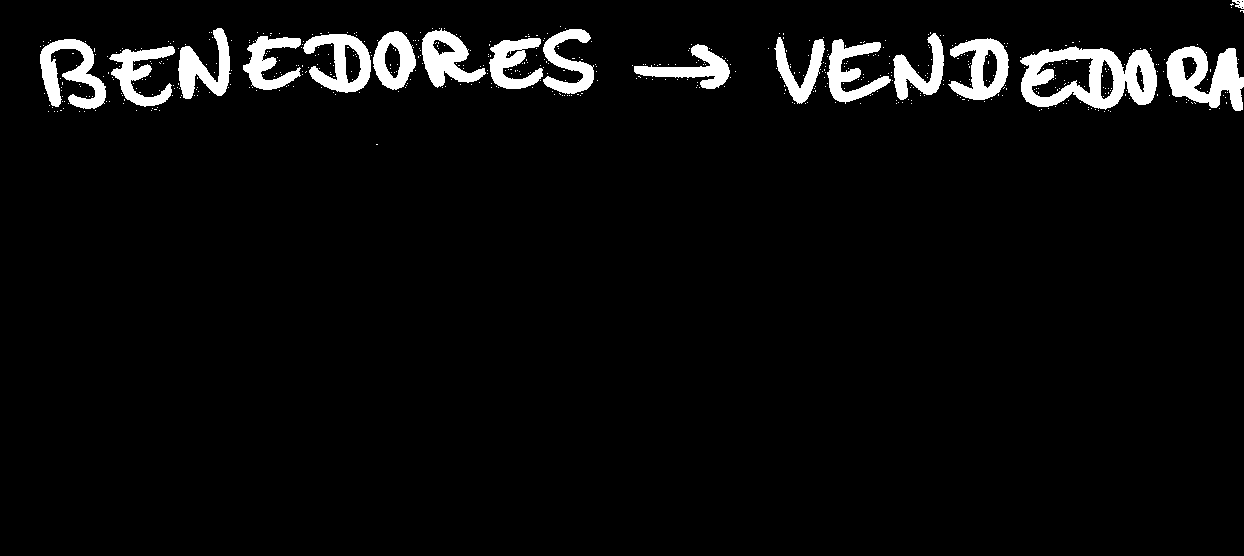 BENEDORES → VENDEDORA